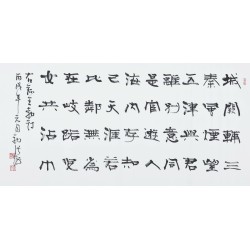 城闕輔三
秦風煙望
五津與君
離別意同
是宦遊人
海內存知
己天涯若
比鄰無為
在歧路兒
女共沾巾
右录王勃詩
丙戌年元月